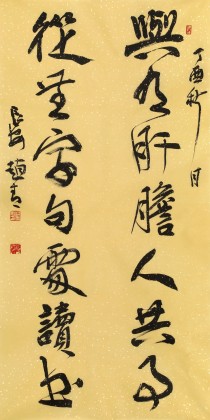 丁酉秋月
與有肝膽人共事
從無字句處讀書
趙